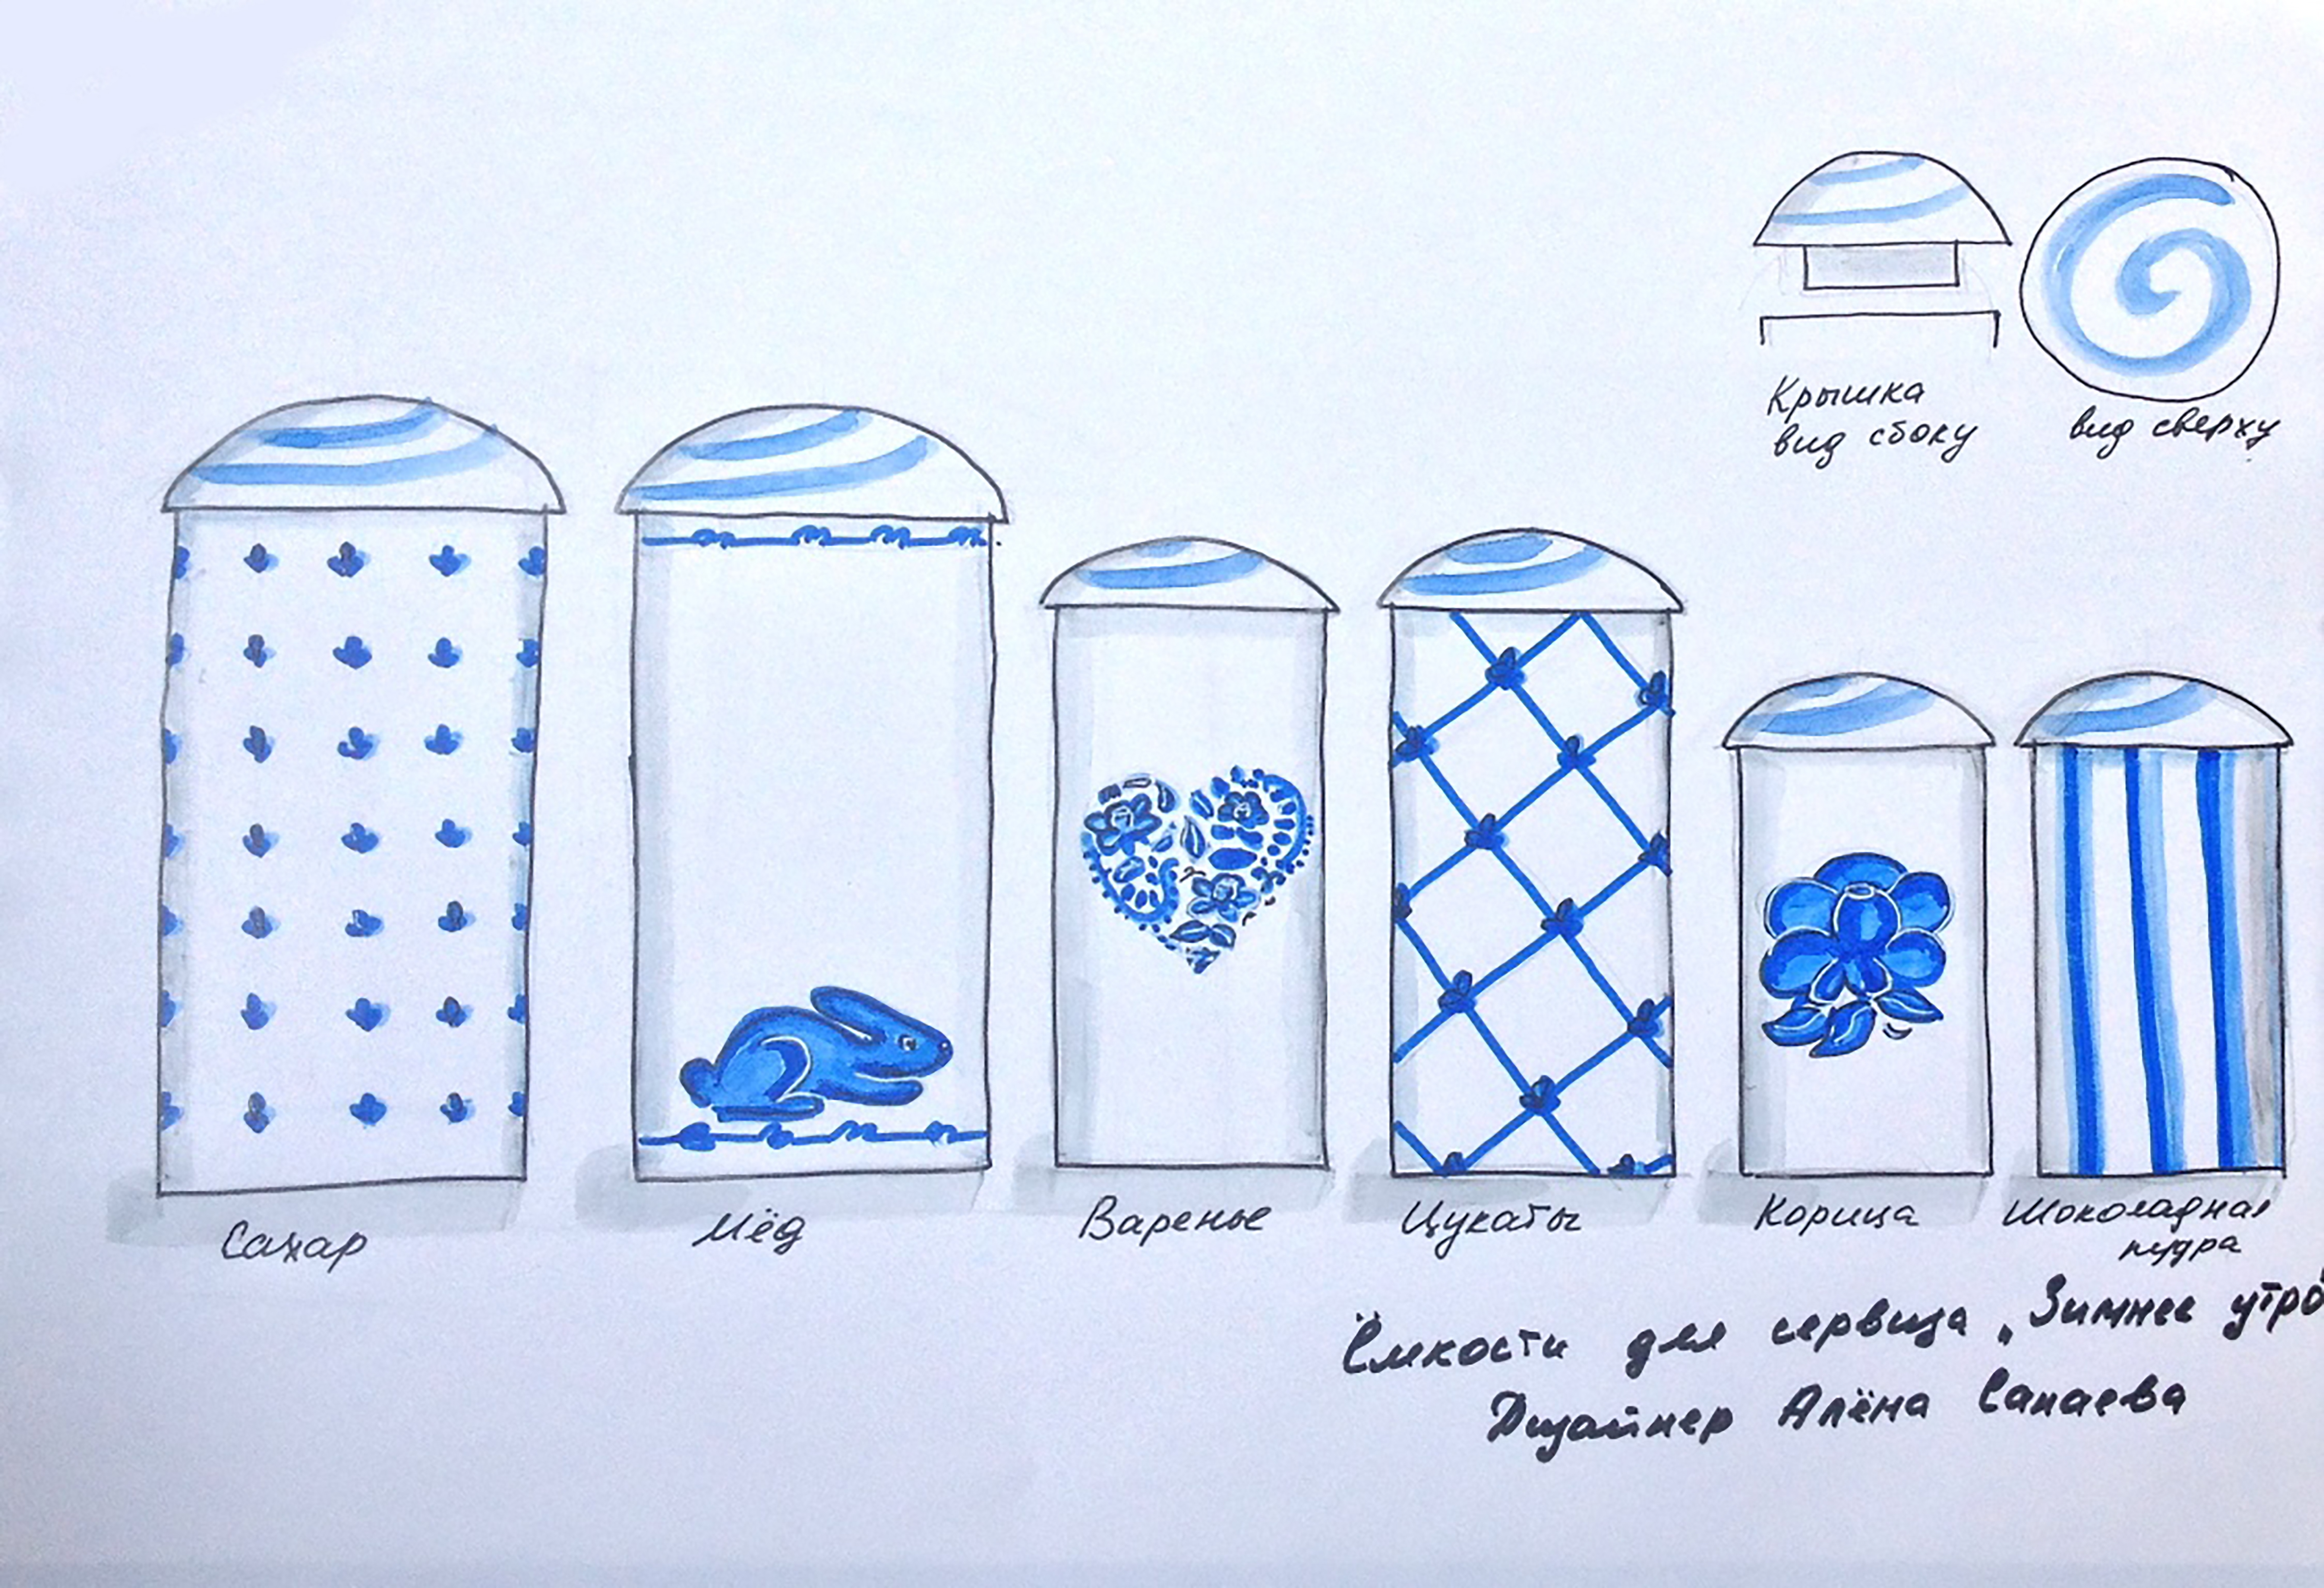 Крышка
вид сбоку
вид сверху
Сахар
Мёд
Варенье
Цукаты
Корица
Шоколадная
пудра
Ёмкости для сервиза „Зимнее утро"
Дизайнер Алёна Сапаева